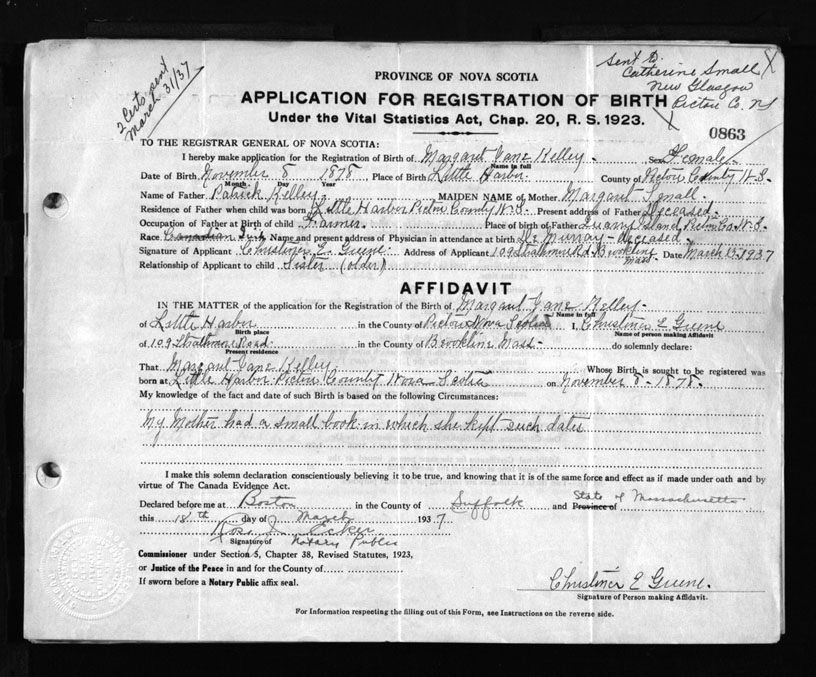 2 Certs sent
March 31/37
Sent to
Catherine Small
New Glasgow
Pictou Co. NS
PROVINCE OF NOVA SCOTIA
APPLICATION FOR REGISTRATION OF BIRTH
Under the Vital Statistics Act, Chap. 20, R. S. 1923.
0863
TO THE REGISTRAR GENERAL OF NOVA SCOTIA:
I hereby make application for the Registration of Birth of Margaret Jane Kelley Sex Female
Name in full
Date of Birth November 8 1878 Place of Birth Little Harbor County of Pictou County N.S.
Month Day Year
Name of Father Patrick Kelley MAIDEN NAME of Mother Margaret Small
Residence of Father when child was born Little Harbor Pictou County N.S. Present address of Father Deceased
Occupation of Father at Birth of child Farmer Place of birth of Father Island Pictou Co. N.S.
Race Canadian Name and present address of Physician in attendance at birth Dr Murray - deceased
Signature of Applicant Christiner E. Greene Address of Applicant 109 Strathmore Rd. Brookline Mass Date March 15, 1937
Relationship of Applicant to child Sister (older)
AFFIDAVIT
IN THE MATTER of the application for the Registration of the Birth of Margaret Jane Kelley
Name in full
of Little Harbor in the County of Pictou Nova Scotia I, Christiner E Greene
Birth place Name of person making Affidavit
of 109 Strathmore Road in the County of Brookline Mass do solemnly declare:
Present residence
That Margaret Jane Kelley Whose Birth is sought to be registered was
born at Little Harbor Pictou County Nova Scotia on November 8 - 1878.
My knowledge of the fact and date of such Birth is based on the following Circumstances:
My Mother had a small book in which she kept such dates
I make this solemn declaration conscientiously believing it to be true, and knowing that it is of the same force and effect as if made under oath and by
virtue of The Canada Evidence Act.
Declared before me at Boston in the County of Suffolk and Province of State of Massachusetts
this 18th day of March 1937
Signature of Notary Public
Commissioner under Section 5, Chapter 38, Revised Statutes, 1923,
or Justice of the Peace in and for the County of
If sworn before a Notary Public affix seal.
Christiner E Greene.
Signature of Person making Affidavit.
For Information respecting the filling out of this Form, see Instructions on the reverse side.